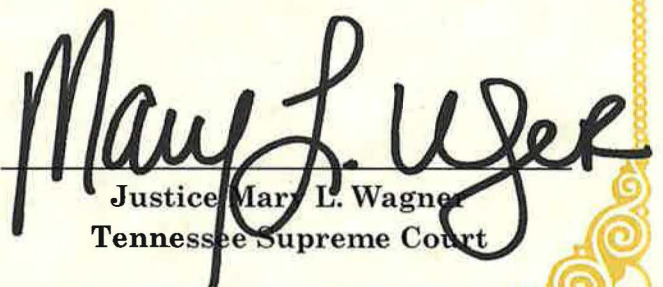 Mary L. Wger
Justice Mary L. Wagner
Tennessee Supreme Court